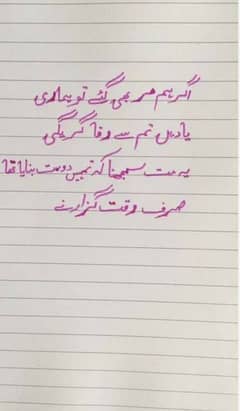 اگر ہم مر بھی گئے تو ہماری
یادیں تم سے وفا کریگی
یہ مت سمجھنا کہ تمہیں دوست بنایا تھا
صرف وقت گزارنے